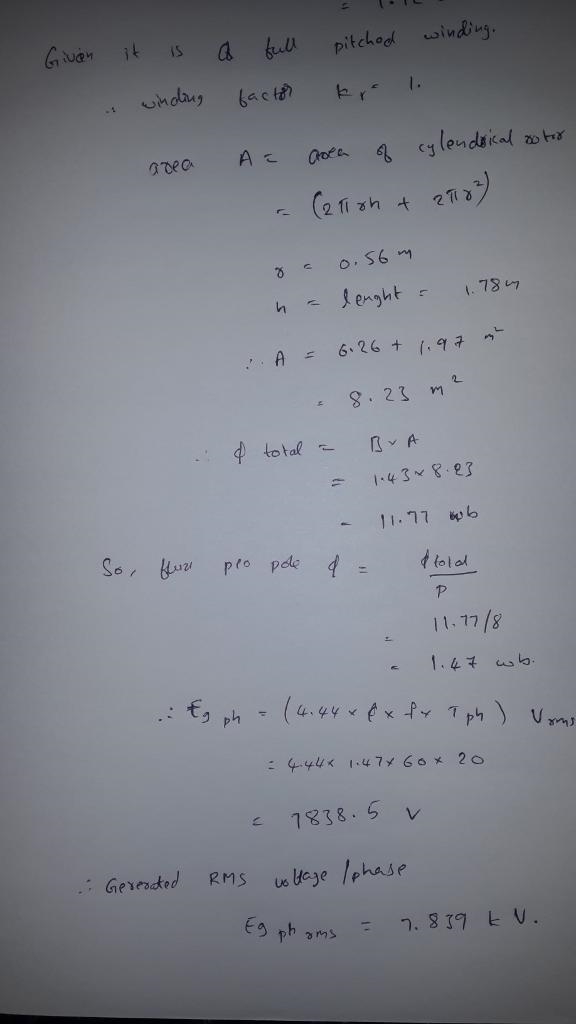 Given it is a full pitched winding.
∴ winding factor kr = 1.
area A = area of cylendrical rotor
= (2πrh + 2πr²)
r = 0.56 m
h = lenght = 1.78 m
∴ A = 6.26 + 1.97 m²
= 8.23 m²
∴ ϕ total = B × A
= 1.43 × 8.23
= 11.77 wb
So, flux per pole ϕ = ϕ total / P
= 11.77/8
= 1.47 wb.
∴ Eg ph = (4.44 × ϕ × f × Tph) Vrms
= 4.44 × 1.47 × 60 × 20
= 7838.5 V
∴ Generated RMS voltage /phase
Eg ph rms = 7.839 kV.